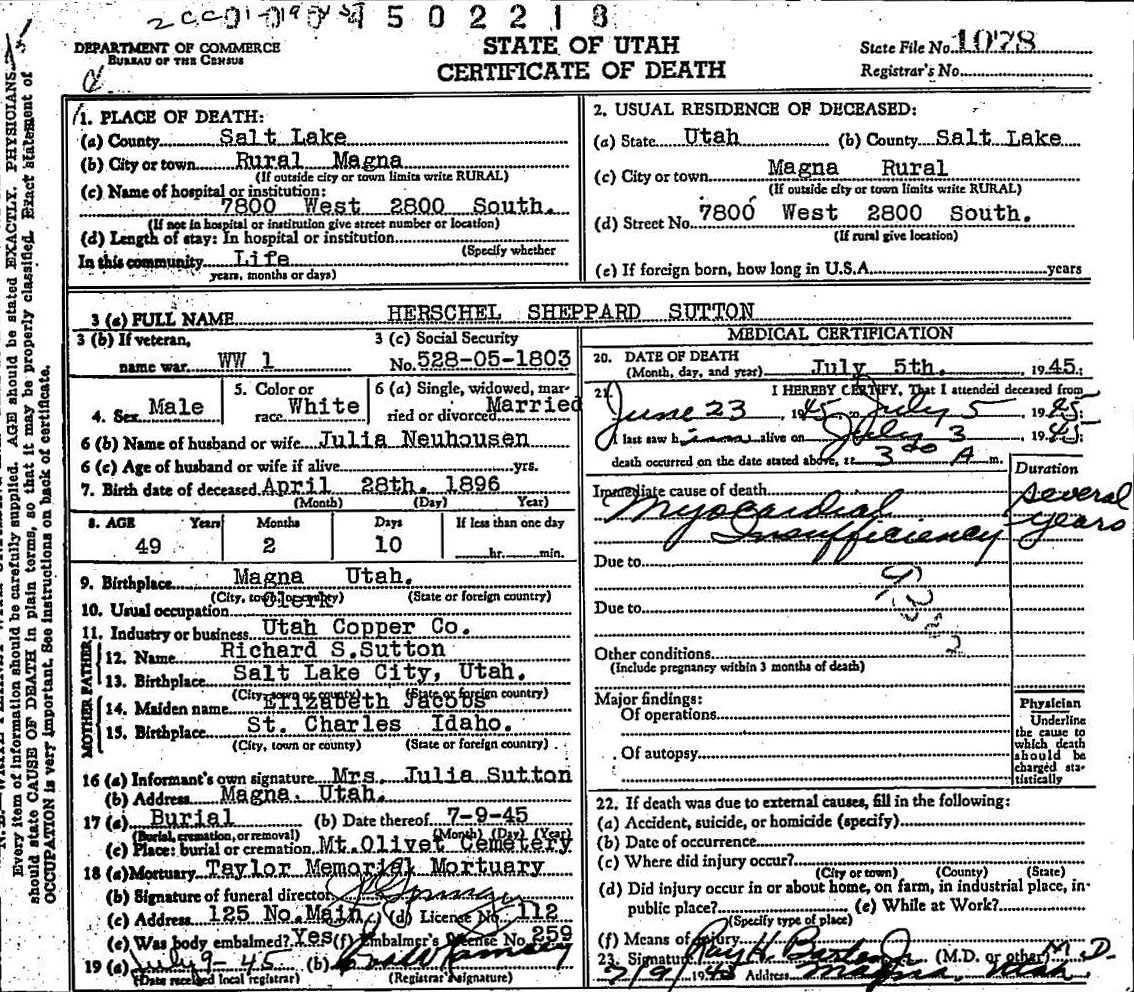 2CC01-0190 4502218
DEPARTMENT OF COMMERCE
BUREAU OF THE CENSUS
STATE OF UTAH
CERTIFICATE OF DEATH
State File No. 1078
Registrar's No.
1. PLACE OF DEATH:
(a) County Salt Lake
(b) City or town Rural Magna
(If outside city or town limits write RURAL)
(c) Name of hospital or institution:
7800 West 2800 South.
(If not in hospital or institution give street number or location)
(d) Length of stay: In hospital or institution
(Specify whether
In this community Life
years, months or days)
2. USUAL RESIDENCE OF DECEASED:
(a) State Utah (b) County Salt Lake
(c) City or town Magna Rural
(If outside city or town limits write RURAL)
(d) Street No. 7800 West 2800 South.
(If rural give location)
(e) If foreign born, how long in U.S.A. years
3 (a) FULL NAME HERSCHEL SHEPPARD SUTTON
3 (b) If veteran, 3 (c) Social Security
name war. WW 1 No. 528-05-1803
4. Sex Male 5. Color or race White 6 (a) Single, widowed, married or divorced Married
6 (b) Name of husband or wife Julia Neuhousen
6 (c) Age of husband or wife if alive yrs.
7. Birth date of deceased April 28th. 1896
(Month) (Day) Year)
8. AGE Years Months Days If less than one day
49 2 10 hr. min.
9. Birthplace Magna Utah.
(City, town or county) (State or foreign country)
10. Usual occupation Clerk
11. Industry or business Utah Copper Co.
FATHER
12. Name Richard S.Sutton
13. Birthplace Salt Lake City, Utah.
(City, town or county) (State or foreign country)
MOTHER
14. Maiden name Elizabeth Jacobs
15. Birthplace St. Charles Idaho.
(City, town or county) (State or foreign country)
16 (a) Informant's own signature Mrs. Julia Sutton
(b) Address Magna. Utah.
17 (a) Burial (b) Date thereof 7-9-45
(Burial, cremation, or removal) (Month) (Day) (Year)
(c) Place: burial or cremation Mt.Olivet Cemetery
18 (a) Mortuary Taylor Memorial Mortuary
(b) Signature of funeral director
(c) Address 125 No.Main (d) License No. 112
(e) Was body embalmed? Yes (f) Embalmer's License No. 259
19 (a) July 9-45 (b)
(Date received local registrar) (Registrar's signature)
MEDICAL CERTIFICATION
20. DATE OF DEATH
(Month, day, and year) July 5th. 1945:
21. I HEREBY CERTIFY, That I attended deceased from
June 23 1945 to July 5, 1945:
I last saw him alive on July 3, 1945:
death occurred on the date stated above, at 3 00 A m.
Duration
Immediate cause of death
Myocardial
Insufficiency
several
years
Due to
Due to
Other conditions
(Include pregnancy within 3 months of death)
Major findings:
Of operations
Of autopsy
Physician
Underline
the cause to
which death
should be
charged sta-
tistically
22. If death was due to external causes, fill in the following:
(a) Accident, suicide, or homicide (specify)
(b) Date of occurrence
(c) Where did injury occur?
(City or town) (County) (State)
(d) Did injury occur in or about home, on farm, in industrial place, in-
public place? (e) While at Work?
(Specify type of place)
(f) Means of injury
23. Signature Ray H. Barton Jr. (M.D. or other) M.D.
7/9/1945 Address Magna, Utah
Every item of information should be carefully supplied. AGE should be stated EXACTLY. PHYSICIANS
should state CAUSE OF DEATH in plain terms, so that it may be properly classified. Exact statement of
OCCUPATION is very important. See instructions on back of certificate.